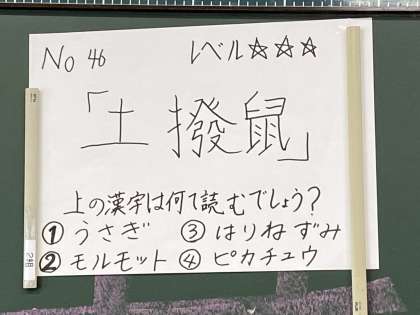 No 46 レベル☆☆☆
「土撥鼠」
上の漢字は何て読むでしょう?
①うさぎ ③はりねずみ
②モルモット ④ピカチュウ